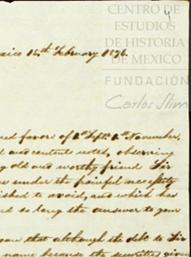 4
CENTRO DE
ESTUDIOS
DE HISTORIA
DE MÉXICO
FUNDACIÓN
Carlos Slim
xico 14th February 1826
ed favor of 2d Septr & November,
d and contents noted, observing
old and worthy friend Sir
under the painful necessity
ished to avoid, and which has
ed so long the answer to your
you that although the debt to Sir
name because the securities given